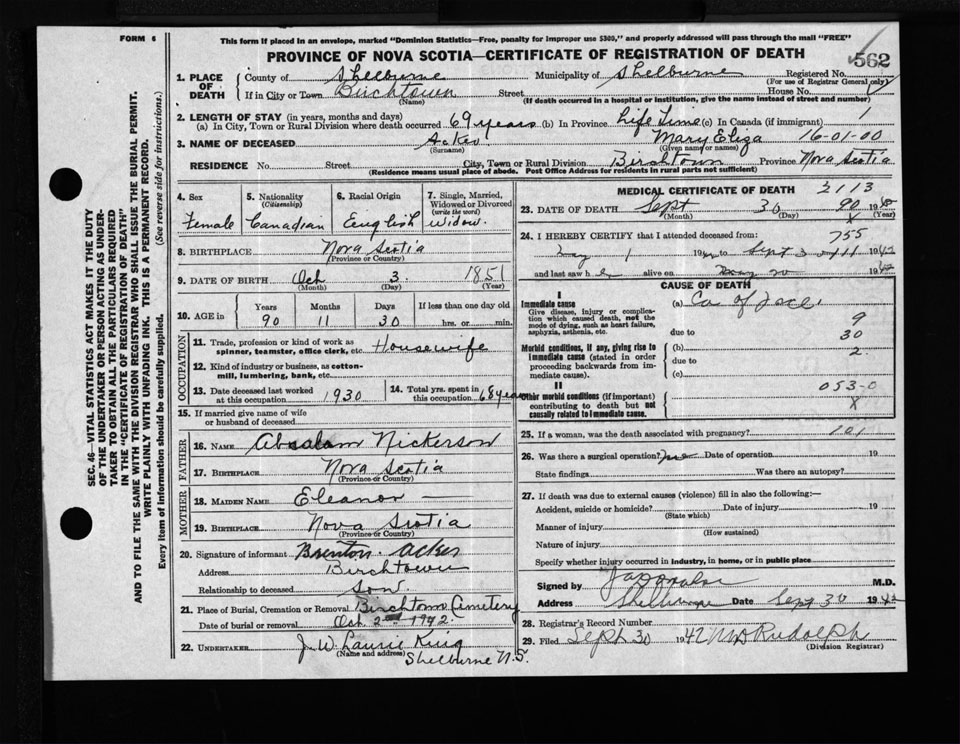 FORM 6
This form if placed in an envelope, marked "Dominion Statistics—Free, penalty for improper use $300," and properly addressed will pass through the mail "FREE"
PROVINCE OF NOVA SCOTIA—CERTIFICATE OF REGISTRATION OF DEATH
562
1. PLACE OF DEATH
County of Shelburne Municipality of Shelburne Registered No.
(For use of Registrar General only)
If in City or Town Birchtown Street House No.
(Name) (If death occurred in a hospital or institution, give the name instead of street and number)
2. LENGTH OF STAY (in years, months and days)
(a) In City, Town or Rural Division where death occurred 69 years (b) In Province Life Time (c) In Canada (if immigrant) 1
3. NAME OF DECEASED Acker Mary Eliza 16-01-00
(Surname) (Given name or names)
RESIDENCE No. Street City, Town or Rural Division Birchtown Province Nova Scotia
(Residence means usual place of abode. Post Office Address for residents in rural parts not sufficient)
SEC. 46—VITAL STATISTICS ACT MAKES IT THE DUTY
OF THE UNDERTAKER OR PERSON ACTING AS UNDER-
TAKER TO OBTAIN ALL THE PARTICULARS REQUIRED
IN THE "CERTIFICATE OF REGISTRATION OF DEATH"
AND TO FILE THE SAME WITH THE DIVISION REGISTRAR WHO SHALL ISSUE THE BURIAL PERMIT.
WRITE PLAINLY WITH UNFADING INK. THIS IS A PERMANENT RECORD.
Every item of information should be carefully supplied. (See reverse side for instructions.)
4. Sex
Female
5. Nationality
(Citizenship)
Canadian
6. Racial Origin
English
7. Single, Married,
Widowed or Divorced
(write the word)
Widow
8. BIRTHPLACE Nova Scotia
(Province or Country)
9. DATE OF BIRTH Och 3 1851
(Month) (Day) (Year)
10. AGE in
Years Months Days If less than one day old
90 11 30 hrs. or min.
OCCUPATION
11. Trade, profession or kind of work as
spinner, teamster, office clerk, etc. Housewife
12. Kind of industry or business, as cotton-
mill, lumbering, bank, etc.
13. Date deceased last worked
at this occupation 1930
14. Total yrs. spent in
this occupation 68 years
15. If married give name of wife
or husband of deceased
FATHER
16. NAME Absalam Nickerson
17. BIRTHPLACE Nova Scotia
(Province or Country)
MOTHER
18. MAIDEN NAME Eleanor —
19. BIRTHPLACE Nova Scotia
(Province or Country)
20. Signature of informant Brenton Acker
Address Birchtown
Relationship to deceased Son
21. Place of Burial, Cremation or Removal Birchtown Cemetery
Date of burial or removal Och 2nd 1942
22. UNDERTAKER J. W. Laurie King
(Name and address)
Shelburne N.S.
MEDICAL CERTIFICATE OF DEATH 2113
23. DATE OF DEATH Sept 30 90 19
(Month) (Day) (Year)
X
24. I HEREBY CERTIFY that I attended deceased from: 755
May 1 1942 to Sept 30 1942
and last saw her alive on May 20 1942
CAUSE OF DEATH
I
Immediate cause
Give disease, injury or complica-
tion which caused death, not the
mode of dying, such as heart failure,
asphyxia, asthenia, etc.
(a) Ca of
9
due to 30
Morbid conditions, if any, giving rise to
immediate cause (stated in order
proceeding backwards from im-
mediate cause).
(b) 2
due to
(c)
II
Other morbid conditions (if important)
contributing to death but not
causally related to immediate cause.
053-0
X
25. If a woman, was the death associated with pregnancy? 101
26. Was there a surgical operation? Date of operation 19
State findings Was there an autopsy?
27. If death was due to external causes (violence) fill in also the following:—
Accident, suicide or homicide? Date of injury 19
(State which)
Manner of injury
(How sustained)
Nature of injury
Specify whether injury occurred in industry, in home, or in public place
Signed by M.D.
Address Shelburne Date Sept 30 1942
28. Registrar's Record Number
29. Filed Sept 30 1942 Rudolph
(Division Registrar)